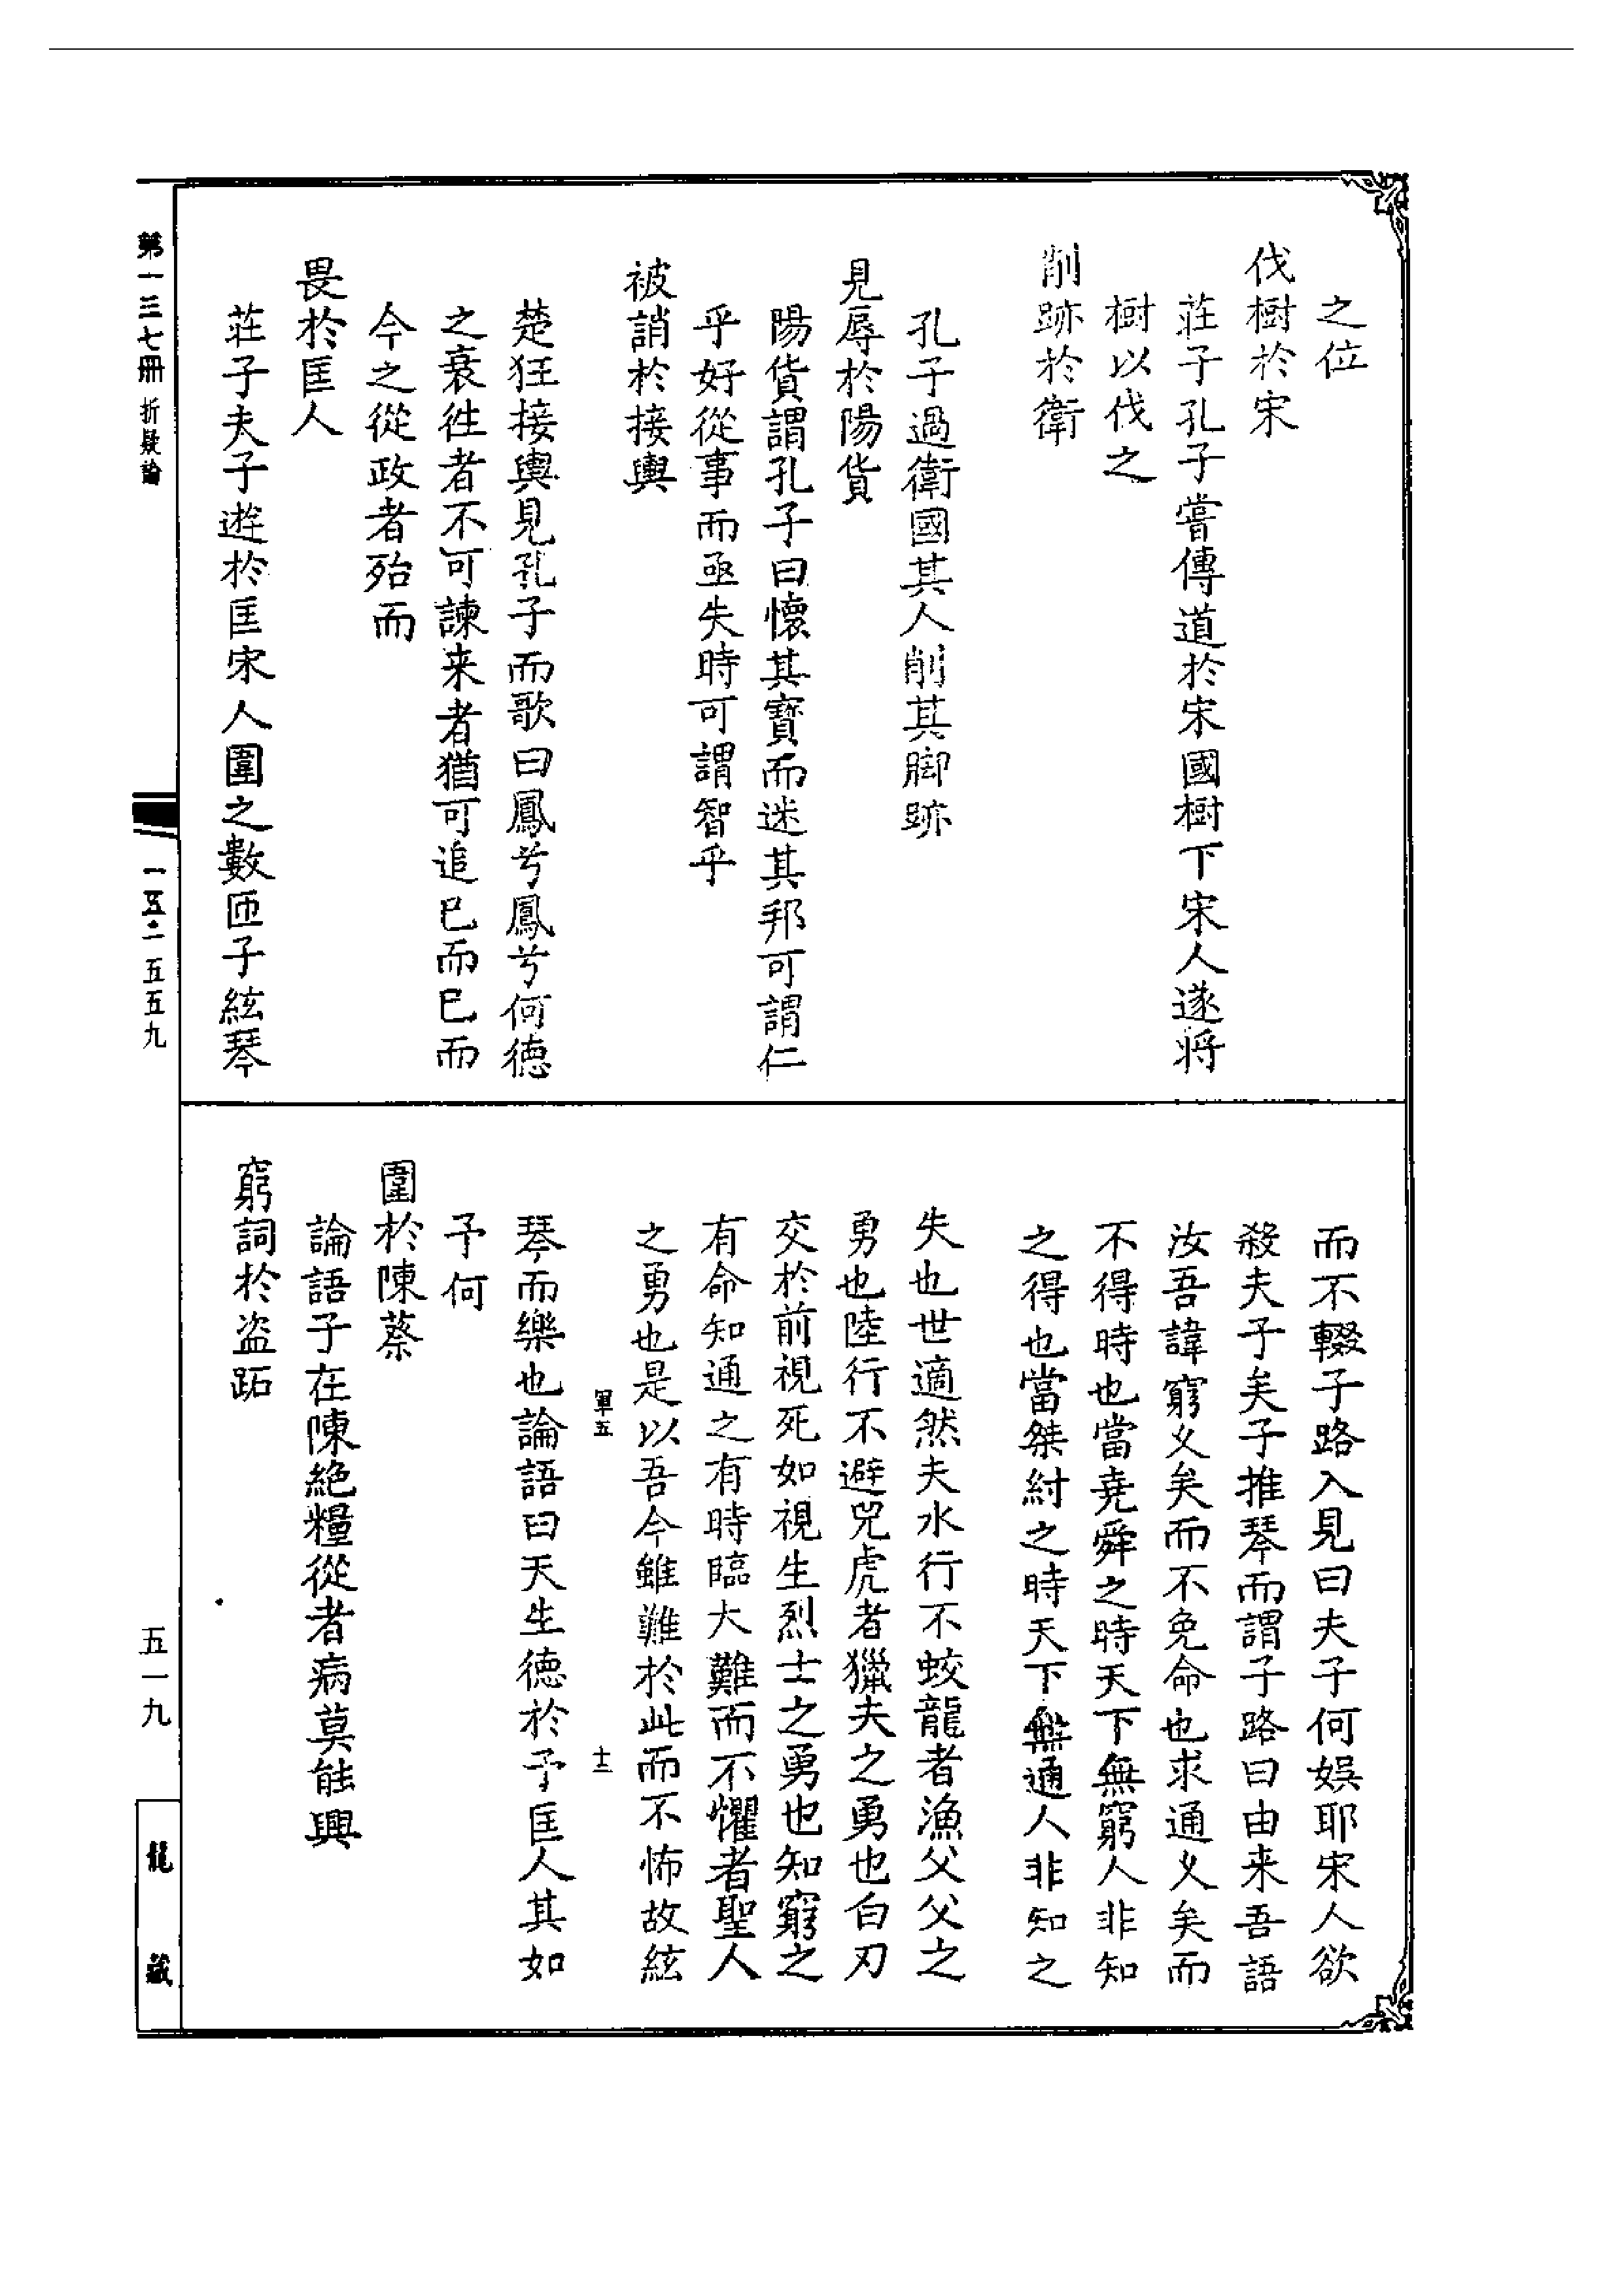 之位
伐樹於宋
莊子孔子嘗傳道於宋國樹下宋人遂將
樹以伐之
削跡於衛
孔子過衛國其人削其脚跡
見辱於陽貨
陽貨謂孔子曰懷其寶而迷其邦可謂仁
乎好從事而亟失時可謂智乎
被誚於接輿
楚狂接輿見孔子而歌曰鳳兮鳳兮何德
之衰徃者不可諫来者猶可追已而已而
今之從政者殆而
畏於匡人
莊子夫子遊於匡宋人圍之數匝子絃琴
而不輟子路入見曰夫子何娯耶宋人欲
殺夫子矣子推琴而謂子路曰由来吾語
汝吾諱窮乆矣而不免命也求通乆矣而
不得時也當堯舜之時天下無窮人非知
之得也當桀紂之時天下無通人非知之
失也世適然夫水行不蛟龍者漁父父之
勇也陸行不避兕虎者獵夫之勇也白刃
交於前視死如視生烈士之勇也知窮之
有命知通之有時臨大難而不懼者聖人
之勇也是以吾今雖難於此而不怖故絃
軍五 十二
琴而樂也論語曰天生德於予匡人其如
予何
圍於陳蔡
論語子在陳絕糧從者病莫能興
窮詞於盜跖
第一三七冊 折疑論 一五二 五五九 五一九 龍藏